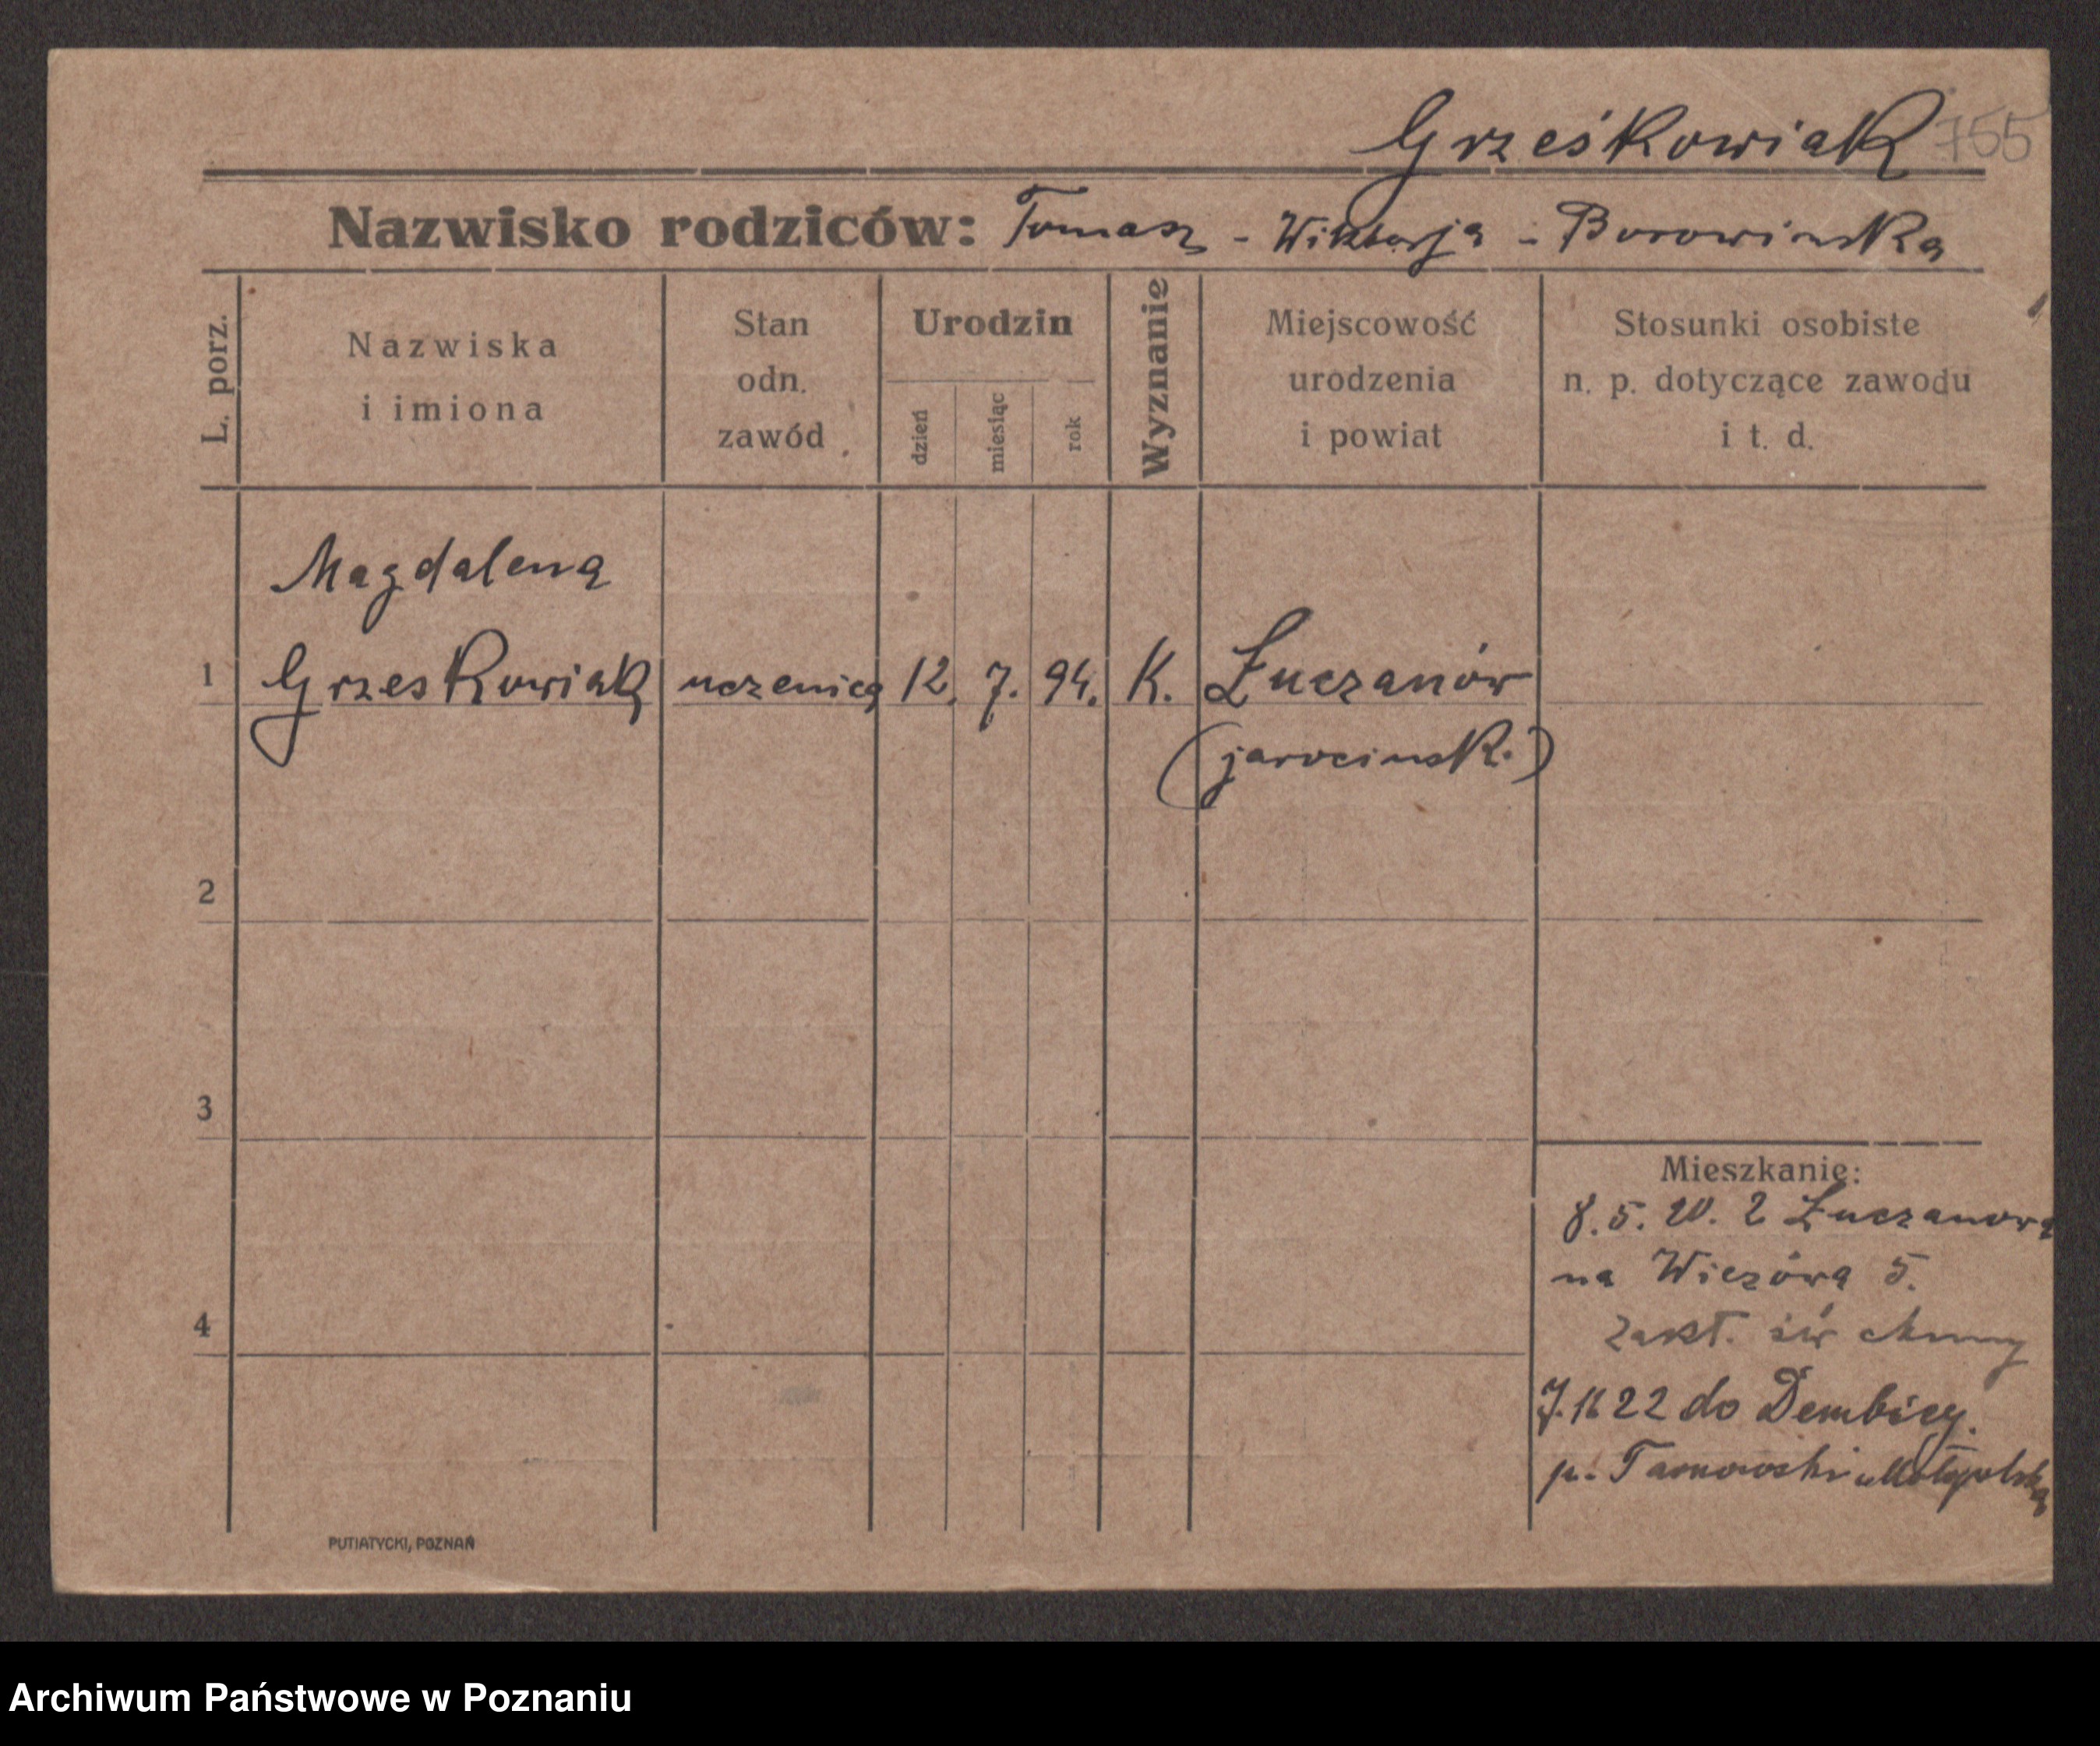 Grześkowiak 755
Nazwisko rodziców: Tomasz - Wiktorja - Borowinska
L. porz.
Nazwiska
i imiona
Stan
odn.
zawód
Urodzin
dzień
miesiąc
rok
Wyznanie
Miejscowość
urodzenia
i powiat
Stosunki osobiste
n. p. dotyczące zawodu
i t. d.
Magdalena
1 Grzeskowiak uczenica 12. 7. 94. K. Łuczanów
(jarocinsk.)
2
3
4
Mieszkanie:
8. 5. 20. z Łuczanowa
na Wiezową 5.
zakł. św
7.11 22 do Dembicy.
p. Tarnowski Małopolska
PUTIATYCKI, POZNAŃ
Archiwum Państwowe w Poznaniu